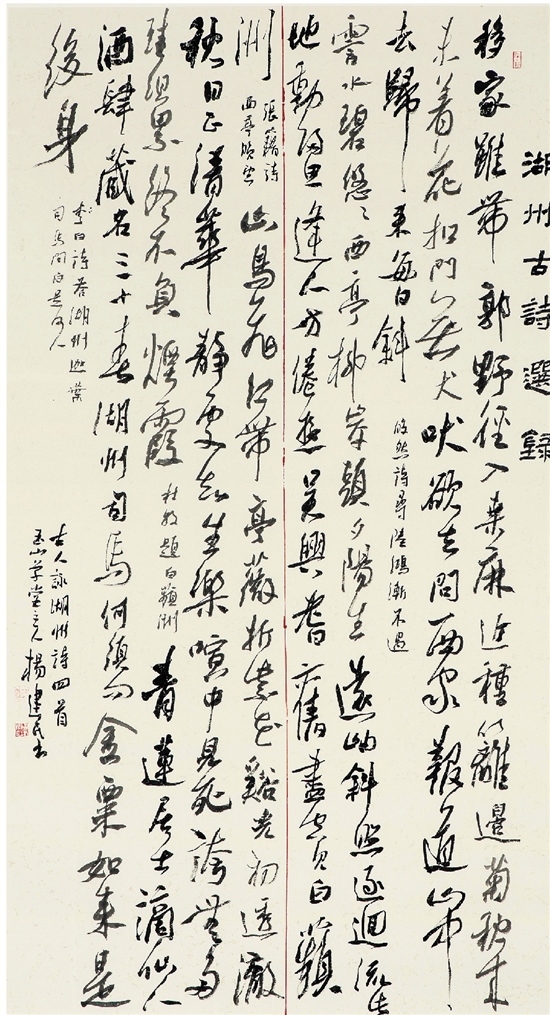 湖州古詩選錄
移家雖帶郭野徑入桑麻近種籬邊菊秋來
未着花扣門無犬吠欲去問西家報道山中
去歸來每日斜
皎然詩尋陸鴻漸不遇
霅水碧悠悠西亭柳岸頭夕陽生遠岫斜照逐迴流此
地動歸思逢人方倦遊吳興耆舊盡空見白蘋
洲
張籍詩
西亭晚望
山鳥飛紅帶亭薇折紫花谿光初透徹
秋日正清華靜處知生樂喧中見死誇無多
珪組累終不負煙霞
杜牧題白蘋洲
青蓮居士謫仙人
酒肆藏名三十春湖州司馬何須問金粟如來是
後身
李白詩答湖州迦葉
司馬問白是何人
古人詠湖州詩四首
玉山草堂主人楊建民書